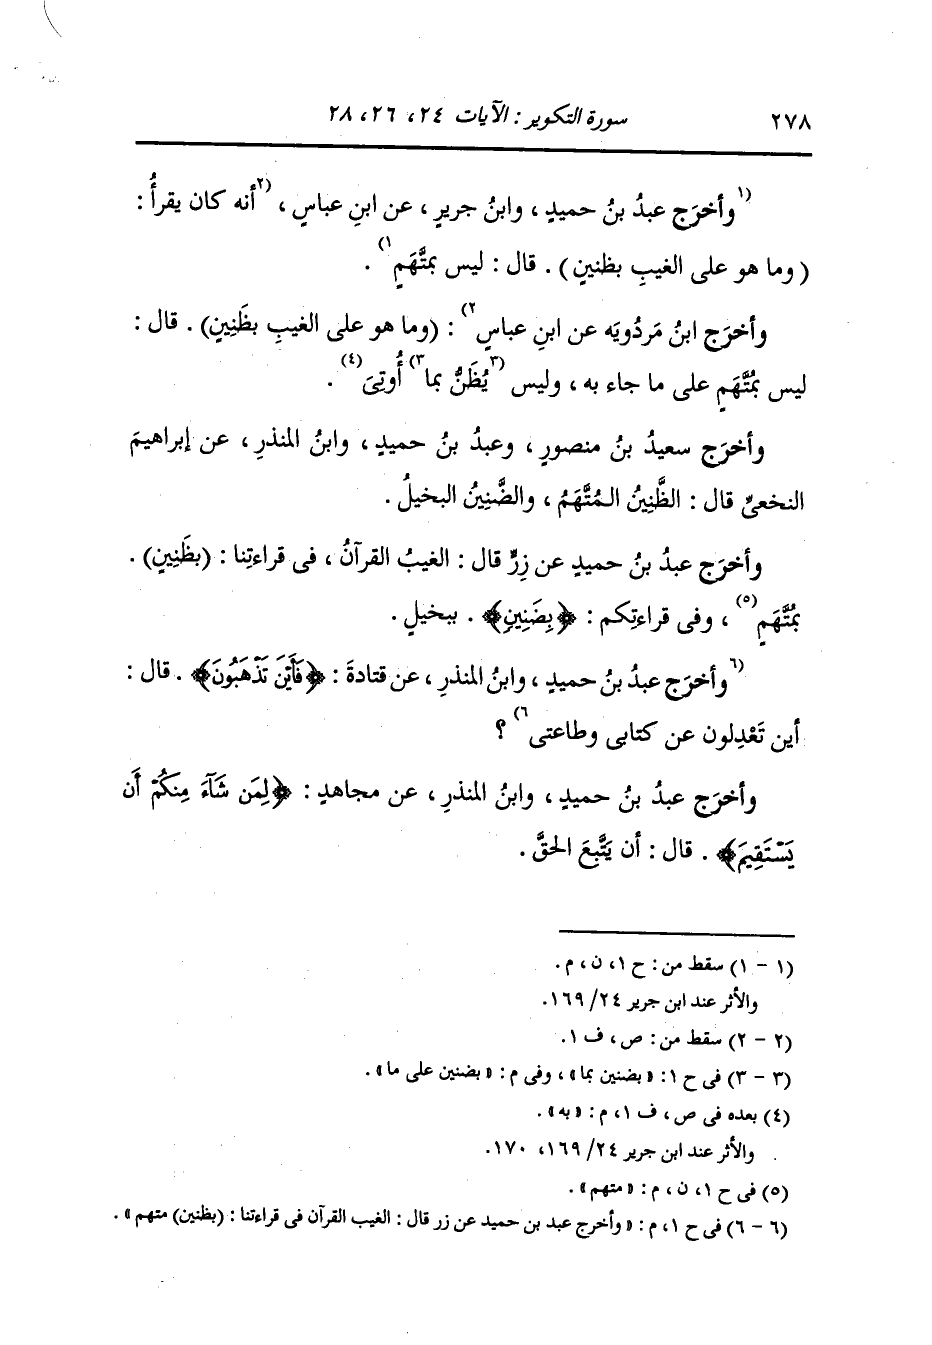 ٢٧٨ سورة التكوير : الآيات ٢٤، ٢٦، ٢٨
(١وأخرَج عبدُ بنُ حميدٍ ، وابنُ جريرٍ ، عن ابنِ عباسٍ ، (٢أنه كان يقرأُ :
( وما هو على الغيبِ بظنين ) . قال : ليس بمتَّهَمٍ١) .
وأخرَج ابنُ مَردُويَه عن ابنِ عباسٍ٢) : (وما هو على الغيبِ بظَنِينٍ) . قال :
ليس بمُتَّهَمٍ على ما جاء به ، وليس (٣يُظَنُّ بما٣) أُوتِىَ(٤) .
وأخرَج سعيدُ بنُ منصورٍ ، وعبدُ بنُ حميدٍ ، وابنُ المنذرِ ، عن إبراهيمَ
النخعىِّ قال : الظَّنِينُ المُتَّهَمُ ، والضَّنِينُ البخيلُ .
وأخرَج عبدُ بنُ حميدٍ عن زِرٍّ قال : الغيبُ القرآنُ ، فى قراءتِنا : (بظَنِينٍ) .
بمُتَّهَمٍ(٥) ، وفى قراءتِكم : ﴿بِضَنِينٍ﴾ . ببخيلٍ .
(٦وأخرَج عبدُ بنُ حميدٍ ، وابنُ المنذرِ ، عن قتادةَ : ﴿فَأَيْنَ تَذْهَبُونَ﴾ . قال :
أين تَعْدِلون عن كتابى وطاعتى٦) ؟
وأخرَج عبدُ بنُ حميدٍ ، وابنُ المنذرِ ، عن مجاهدٍ : ﴿لِمَن شَآءَ مِنكُمْ أَن
يَسْتَقِيمَ﴾ . قال : أن يَتَّبِعَ الحقَّ .
(١ - ١) سقط من : ح ١، ن ، م .
والأثر عند ابن جرير ٢٤/ ١٦٩.
(٢ - ٢) سقط من : ص ، ف ١.
(٣ - ٣) فى ح ١: «بضنين بما» ، وفى م : «بضنين على ما» .
(٤) بعده فى ص ، ف ١، م : «به» .
والأثر عند ابن جرير ٢٤/ ١٦٩، ١٧٠.
(٥) فى ح ١، ن ، م : «متهم» .
(٦ - ٦) فى ح ١، م : «وأخرج عبد بن حميد عن زر قال : الغيب القرآن فى قراءتنا : (بظنين) متهم» .